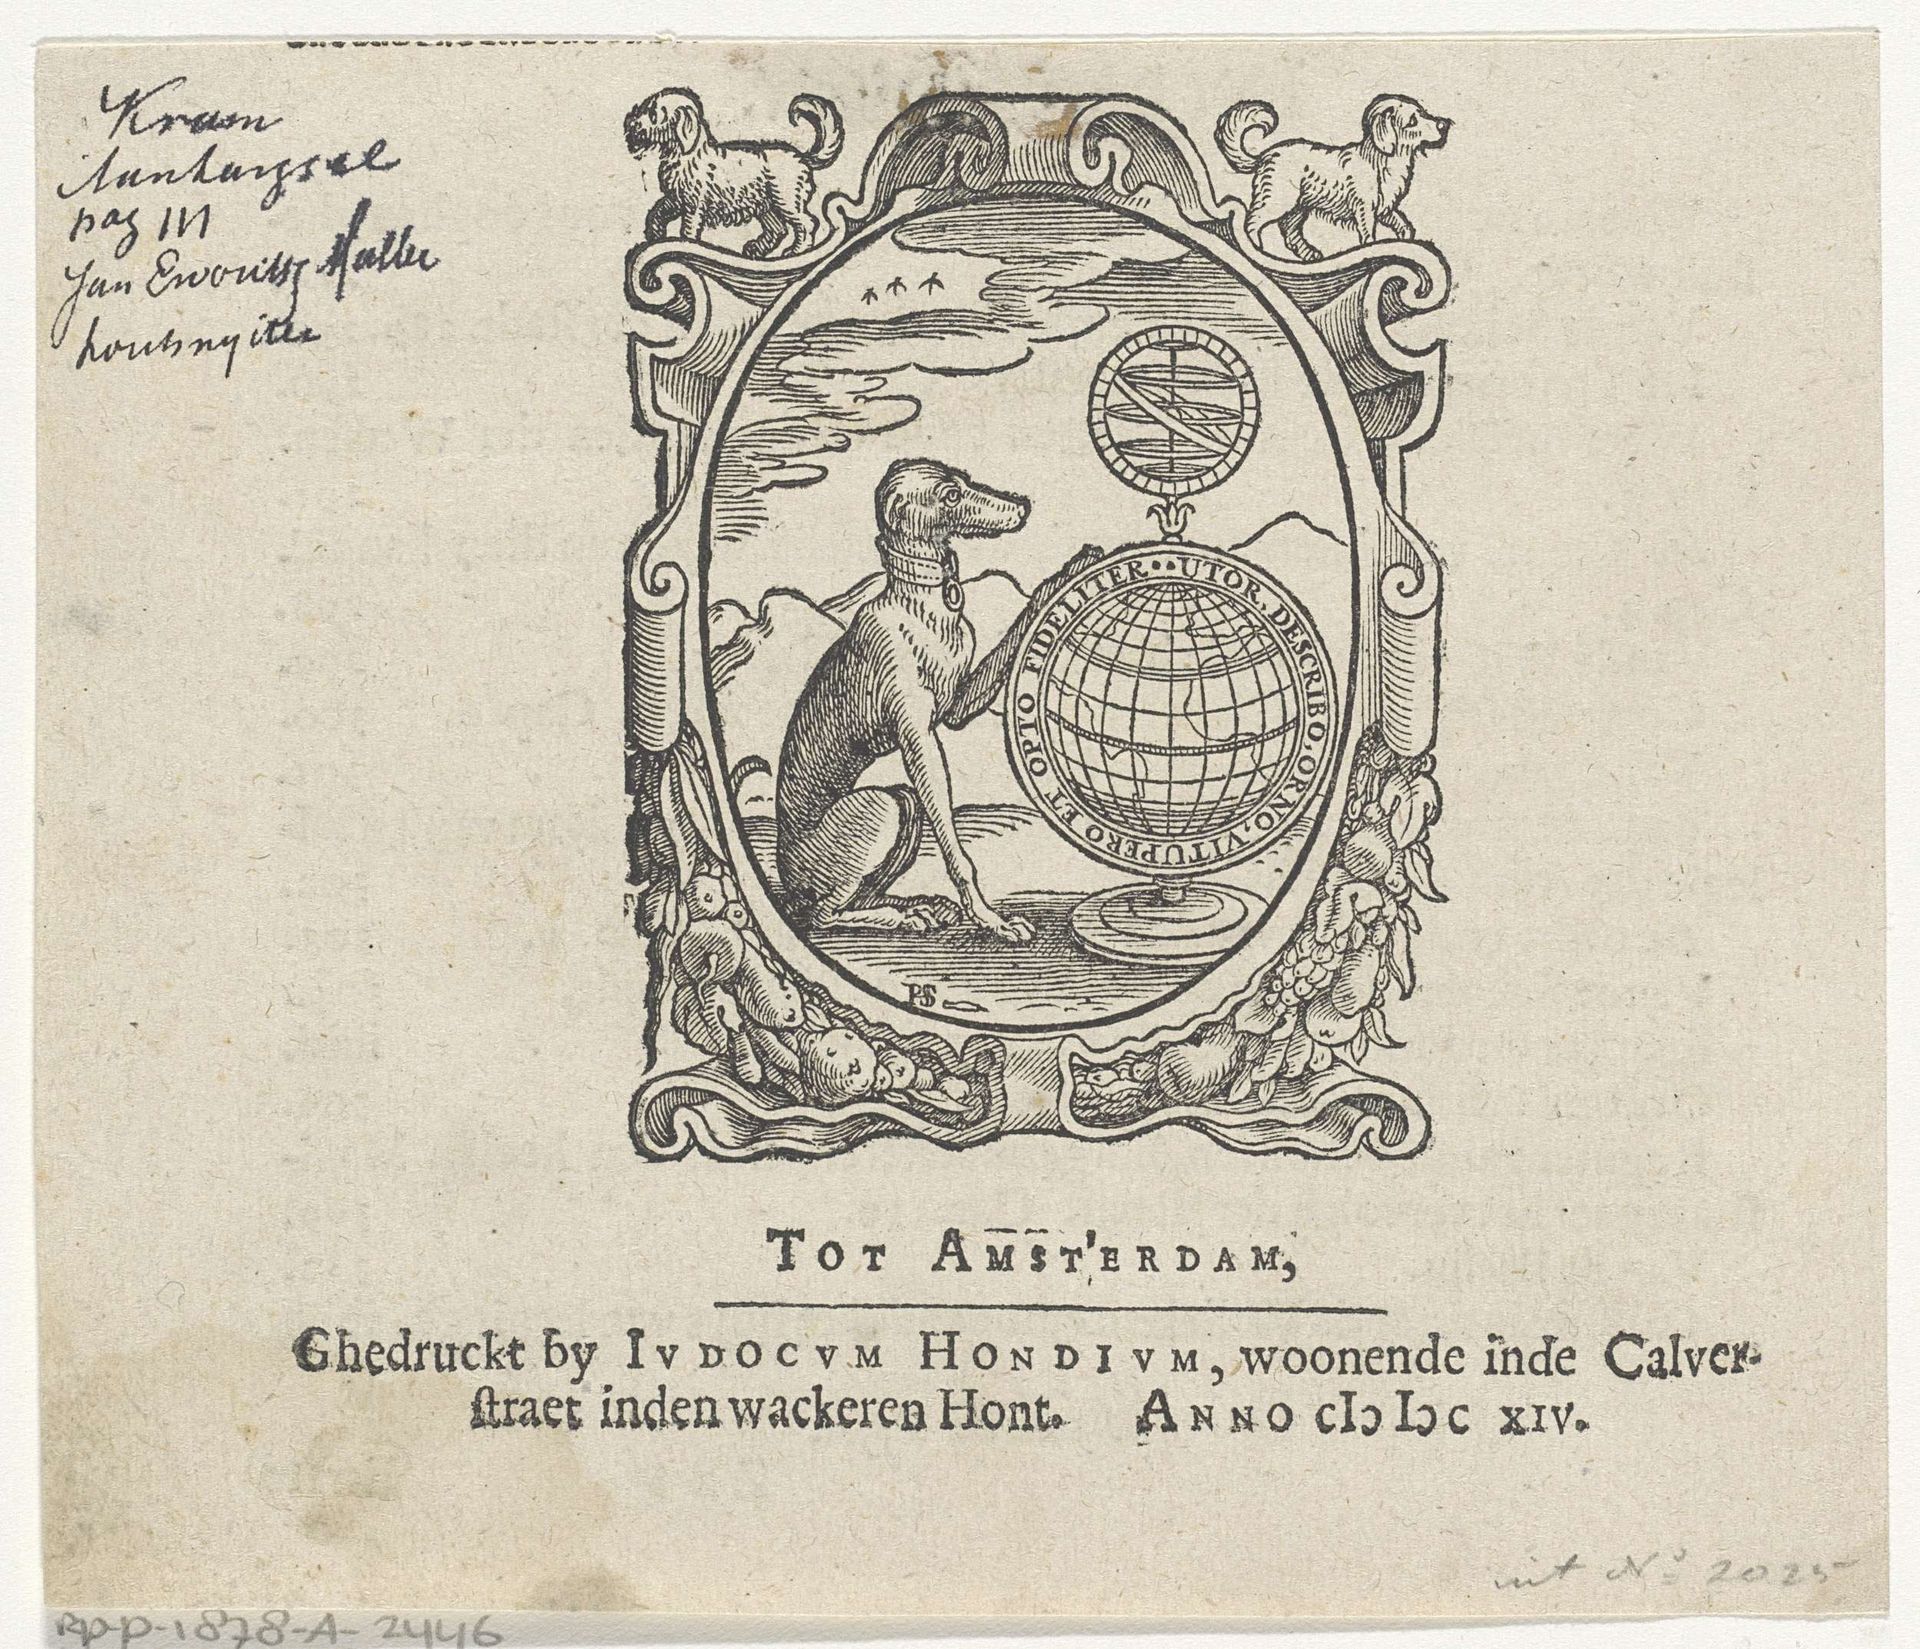 Kram
Aanhangsel
pag 111
Jan Ewoutsz Muller
houtsnyder
UTOR, DESCRIBO, ORNO, VITUPERO ET OPTO FIDELITER
TOT AMST'ERDAM,
Ghedruckt by IVDOCVM HONDIVM, woonende inde Calver-
straet inden wackeren Hont. ANNO CIↃ IↃC XIV.
uit No 2025
RP-P-1878-A-2446